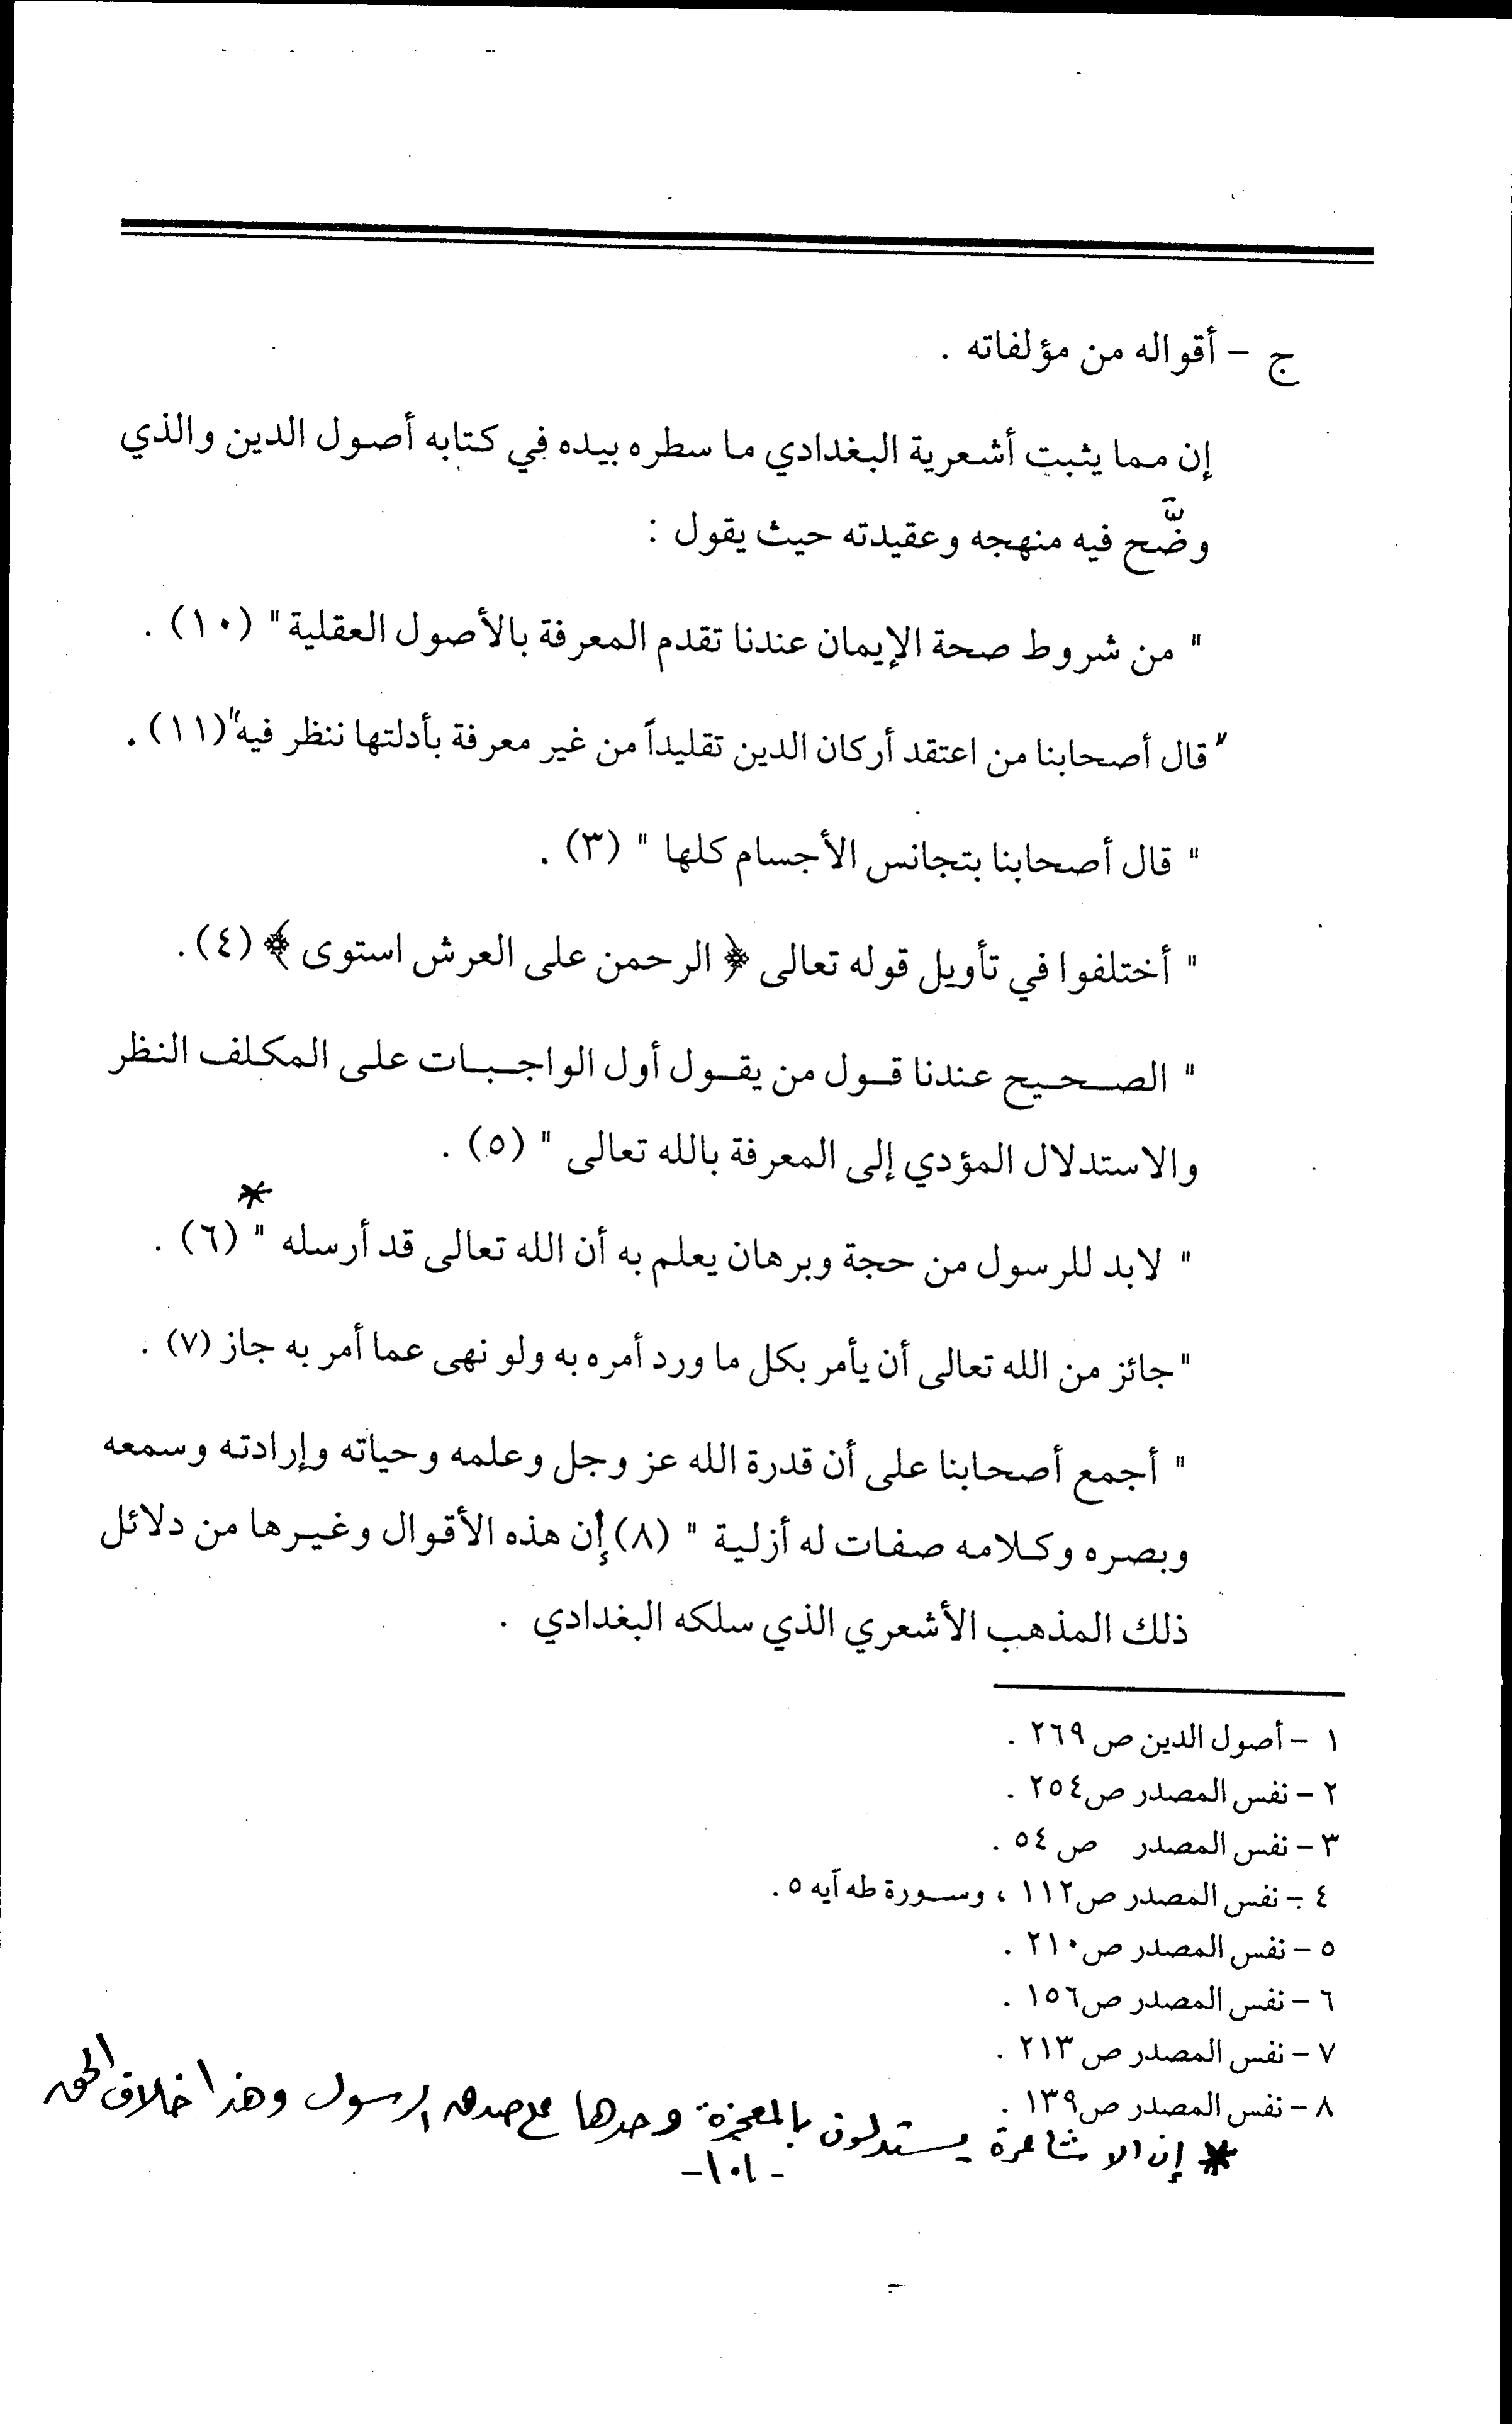 ج - أقواله من مؤلفاته .
إن مما يثبت أشعرية البغدادي ما سطره بيده في كتابه أصول الدين والذي
وضَّح فيه منهجه وعقيدته حيث يقول :
" من شروط صحة الإيمان عندنا تقدم المعرفة بالأصول العقلية " (١٠) .
" قال أصحابنا من اعتقد أركان الدين تقليداً من غير معرفة بأدلتها ننظر فيه" (١١) .
" قال أصحابنا بتجانس الأجسام كلها " (٣) .
" أختلفوا في تأويل قوله تعالى ﴿ الرحمن على العرش استوى ﴾ (٤) .
" الصحيح عندنا قول من يقول أول الواجبات على المكلف النظر
والاستدلال المؤدي إلى المعرفة بالله تعالى " (٥) .
" لابد للرسول من حجة وبرهان يعلم به أن الله تعالى قد أرسله " * (٦) .
" جائز من الله تعالى أن يأمر بكل ما ورد أمره به ولو نهى عما أمر به جاز (٧) .
" أجمع أصحابنا على أن قدرة الله عز وجل وعلمه وحياته وإرادته وسمعه
وبصره وكلامه صفات له أزلية " (٨) إن هذه الأقوال وغيرها من دلائل
ذلك المذهب الأشعري الذي سلكه البغدادي .
١ - أصول الدين ص ٢٦٩ .
٢ - نفس المصدر ص٢٥٤ .
٣ - نفس المصدر ص ٥٤ .
٤ - نفس المصدر ص١١٢ ، وسورة طه آيه ٥ .
٥ - نفس المصدر ص٢١٠ .
٦ - نفس المصدر ص١٥٦ .
٧ - نفس المصدر ص ٢١٣ .
٨ - نفس المصدر ص١٣٩ .
* إن الاشاعرة يستدلون بالمعجزة وحدها على صدق الرسول وهذا خلاف الحق
-١٠١-